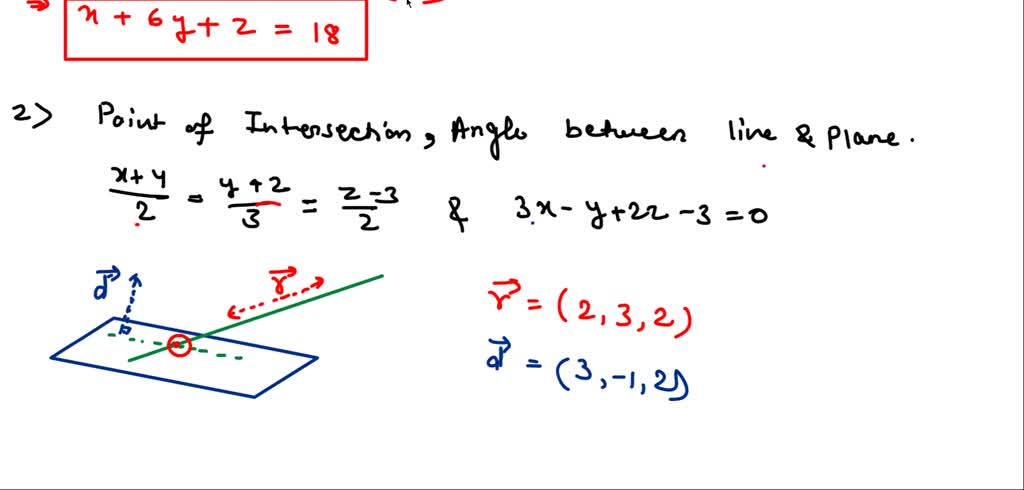 ⇒ x + 6y + z = 18
2> Point of Intersection, Angle between line & Plane.
(x+4)/2 = (y+2)/3 = (z-3)/2 & 3x - y + 2z - 3 = 0
d⃗ r⃗
r⃗ = (2, 3, 2)
d⃗ = (3, -1, 2)